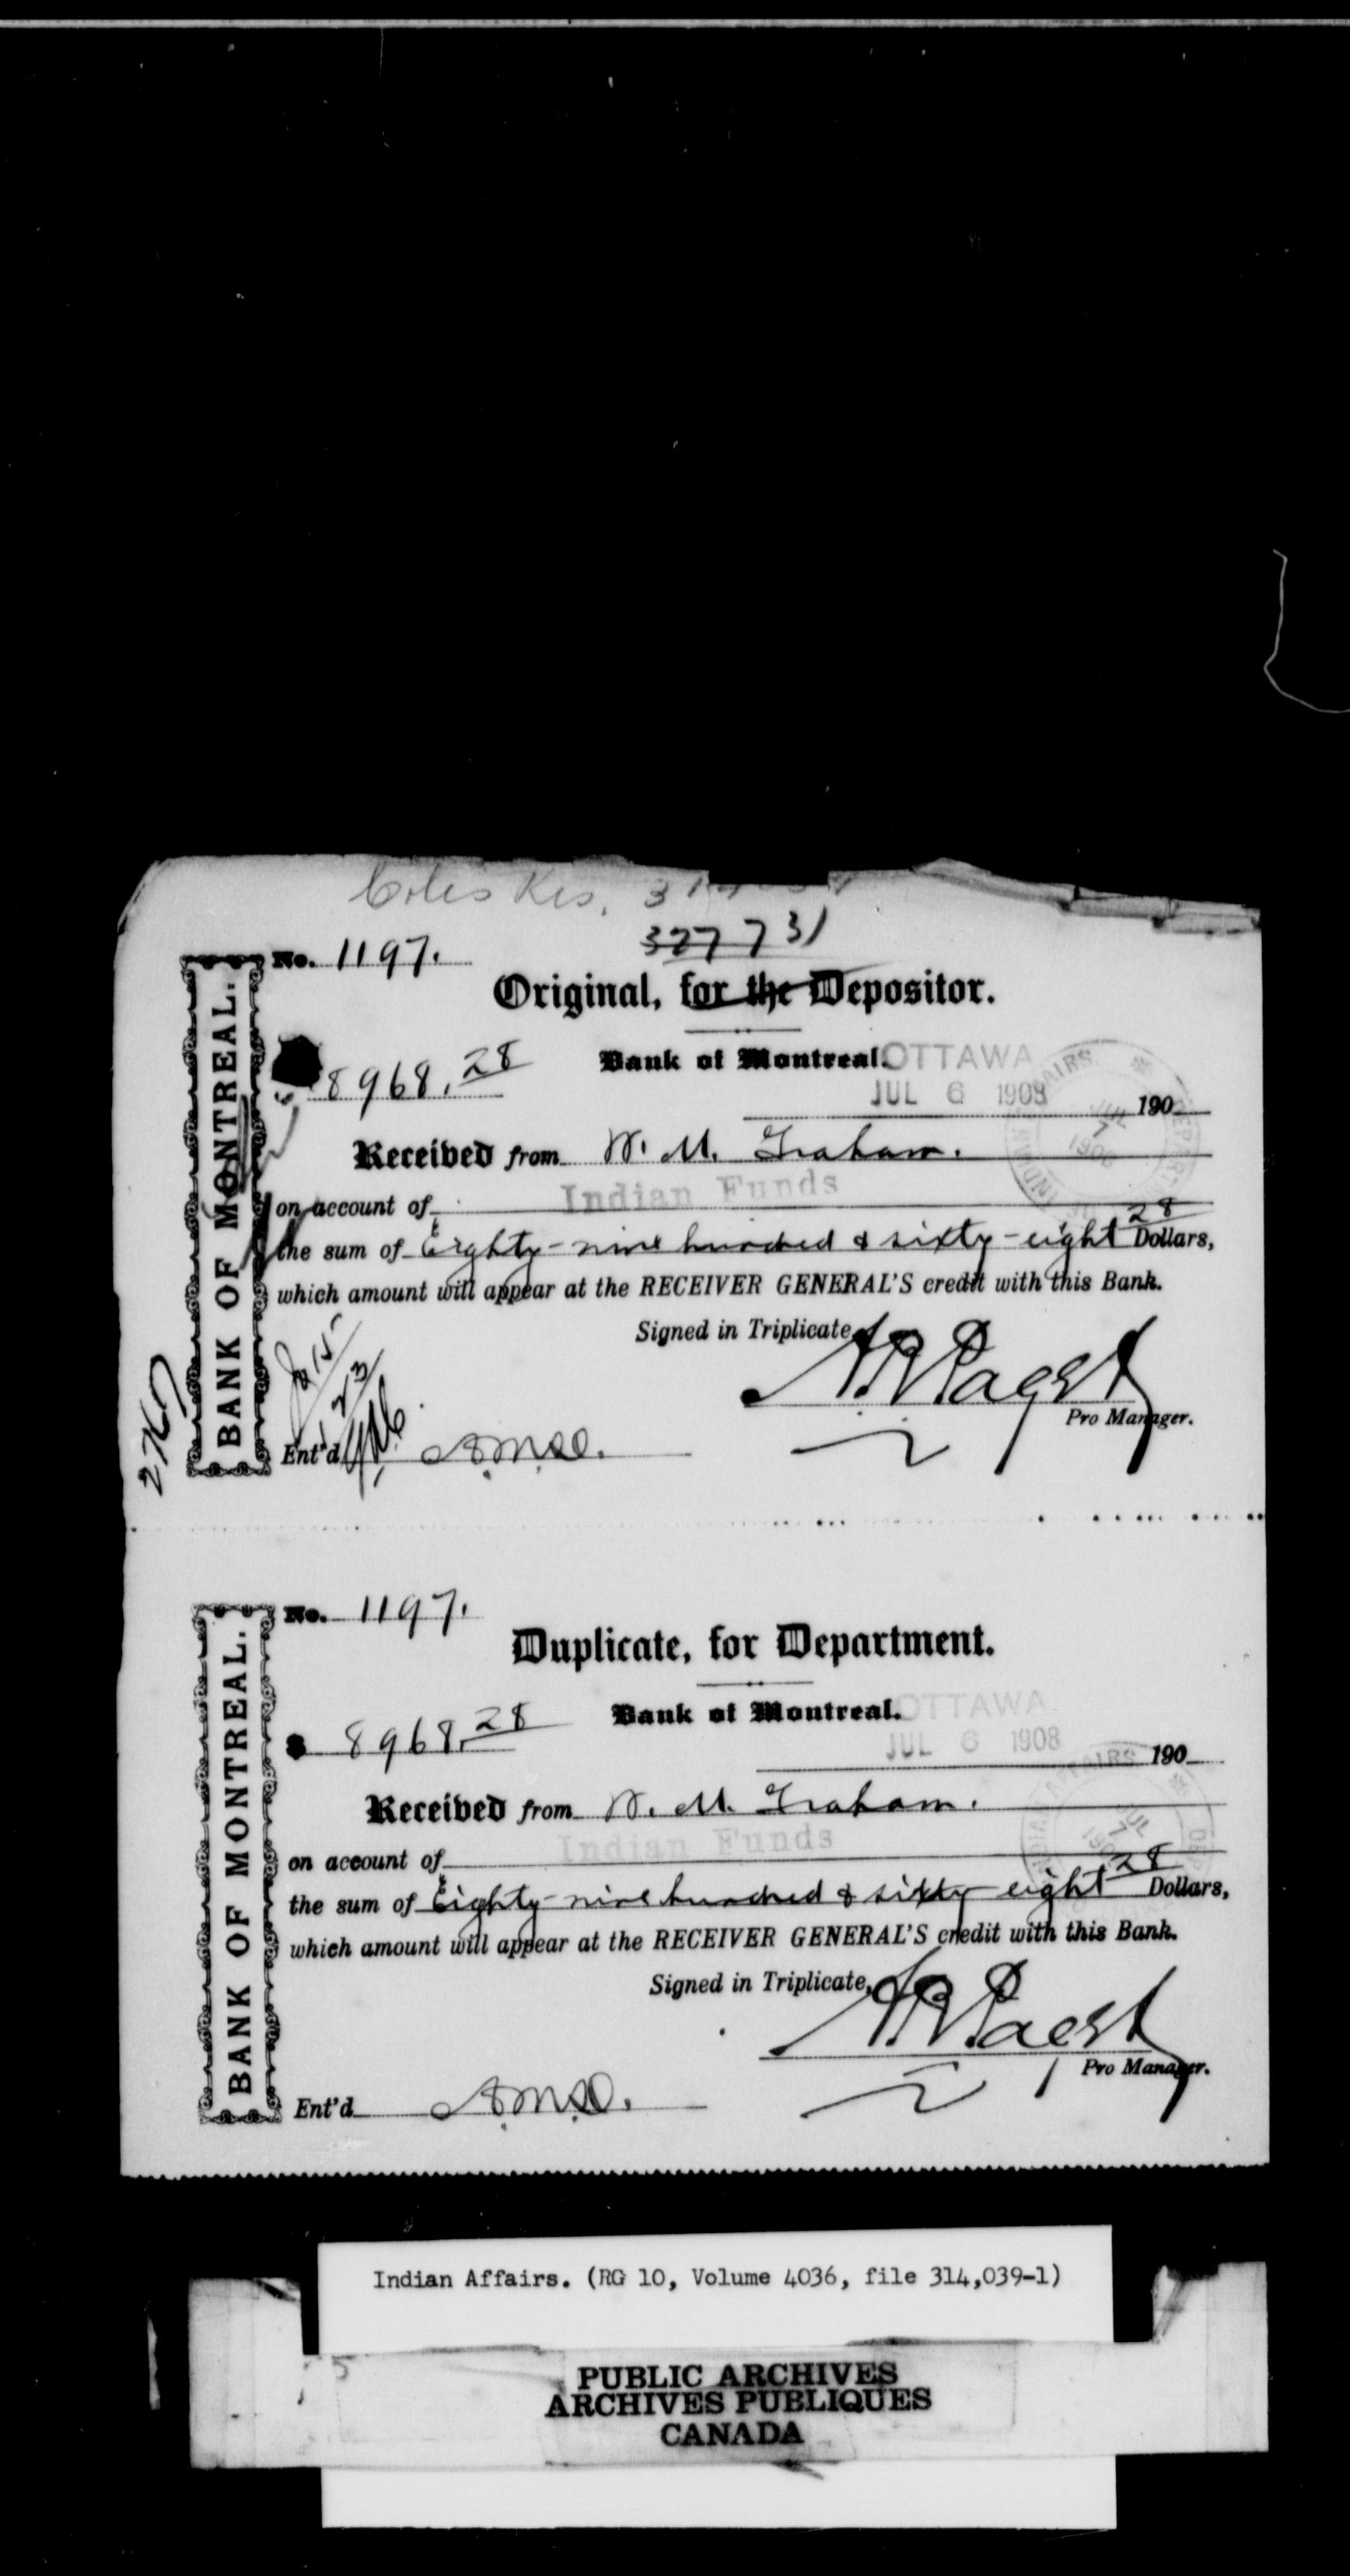 327731
No. 1197.
Original, for the Depositor.
BANK OF MONTREAL.
8968.28
Bank of Montreal. OTTAWA
JUL 6 1908 190
Received from W. M. Graham.
on account of Indian Funds
the sum of Eighty-nine hundred & sixty-eight 28 Dollars,
which amount will appear at the RECEIVER GENERAL'S credit with this Bank.
Signed in Triplicate,
Pro Manager.
Ent'd
No. 1197.
Duplicate, for Department.
BANK OF MONTREAL.
$ 8968.28
Bank of Montreal. OTTAWA
JUL 6 1908 190
Received from W. M. Graham.
on account of Indian Funds
the sum of Eighty-nine hundred & sixty eight 28 Dollars,
which amount will appear at the RECEIVER GENERAL'S credit with this Bank.
Signed in Triplicate,
Pro Manager.
Ent'd
Indian Affairs. (RG 10, Volume 4036, file 314,039-1)
PUBLIC ARCHIVES
ARCHIVES PUBLIQUES
CANADA